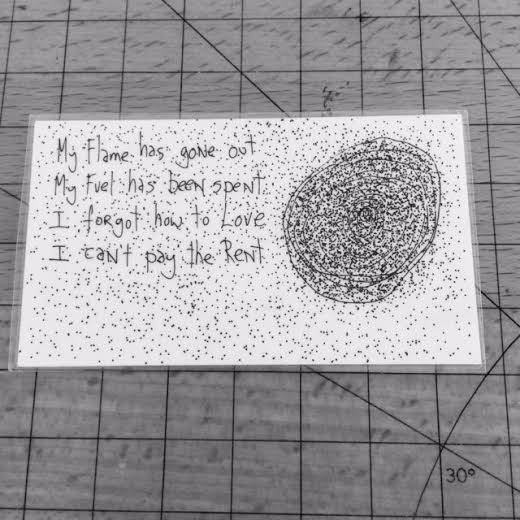 My Flame has gone out
My Fuel has been spent
I forgot how to Love
I can't pay the Rent
30°